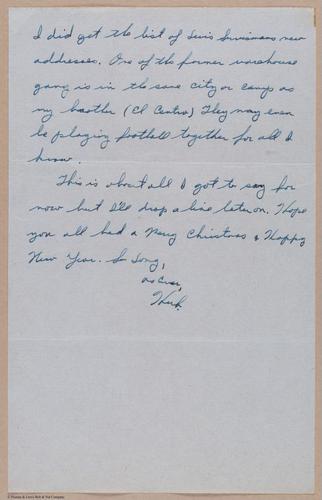 I did get the list of Lewis Servicemens new
addresses. One of the former warehouse
gang is in the same city or camp as
my brother (El Centro) They may even
be playing football together for all I
know.
This is about all I got to say for
now but I'll drop a line later on. Hope
you all had a Merry Christmas & Happy
New Year. So Long,
as Ever,
Herb.